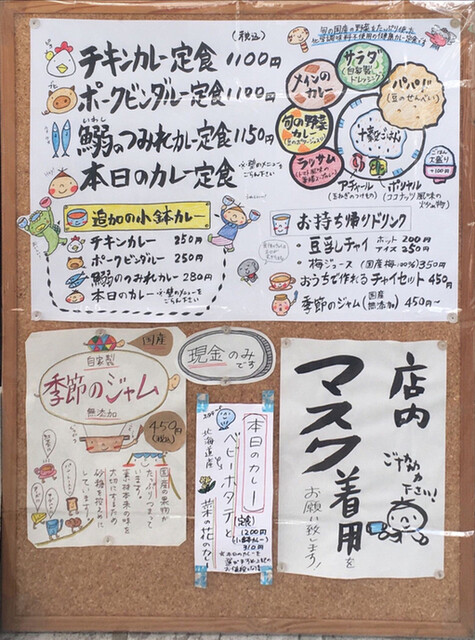 (税込)
チキンカレー定食 1100円
ポークビンダルー定食 1100円
いわし
鰯のつみれカレー定食 1150円
本日のカレー定食
※壁のメニューを
ごらん下さい
旬の国産の野菜をたっぷり使った
化学調味料不使用の健康カレー定食です
サラダ
(自家製
ドレッシング)
メインの
カレー
パパド
(豆のせんべい)
旬の野菜
カレー
十穀ごはん
ラッサム
ごはん
大盛り
+100円
アチャール
(玉ねぎのつけもの)
ポリヤル
(ココナッツ風味の
炒め物)
追加の小鉢カレー
チキンカレー 250円
ポークビンダルー 250円
鰯のつみれカレー 280円
本日のカレー
※壁のメニューを
ごらん下さい
お持ち帰りドリンク
・豆乳チャイ ホット 200円
アイス 250円
・梅ジュース (国産梅100%) 350円
おうちで作れるチャイセット 450円
季節のジャム (国産 無添加) 450円~
国産
自家製
季節のジャム
無添加
450円
(税込)
国産の果物が
たっぷりつまって
ます
素材本来の味を
大切にするため
砂糖を控えめに
してます
現金のみ
です
本日のカレー
北海道産
ベビーホタテと
菜の花のカレー
(定食)
1200円
(小鉢カレー)
310円
店内
マスク着用を
お願い致します!
ご協力
下さい!